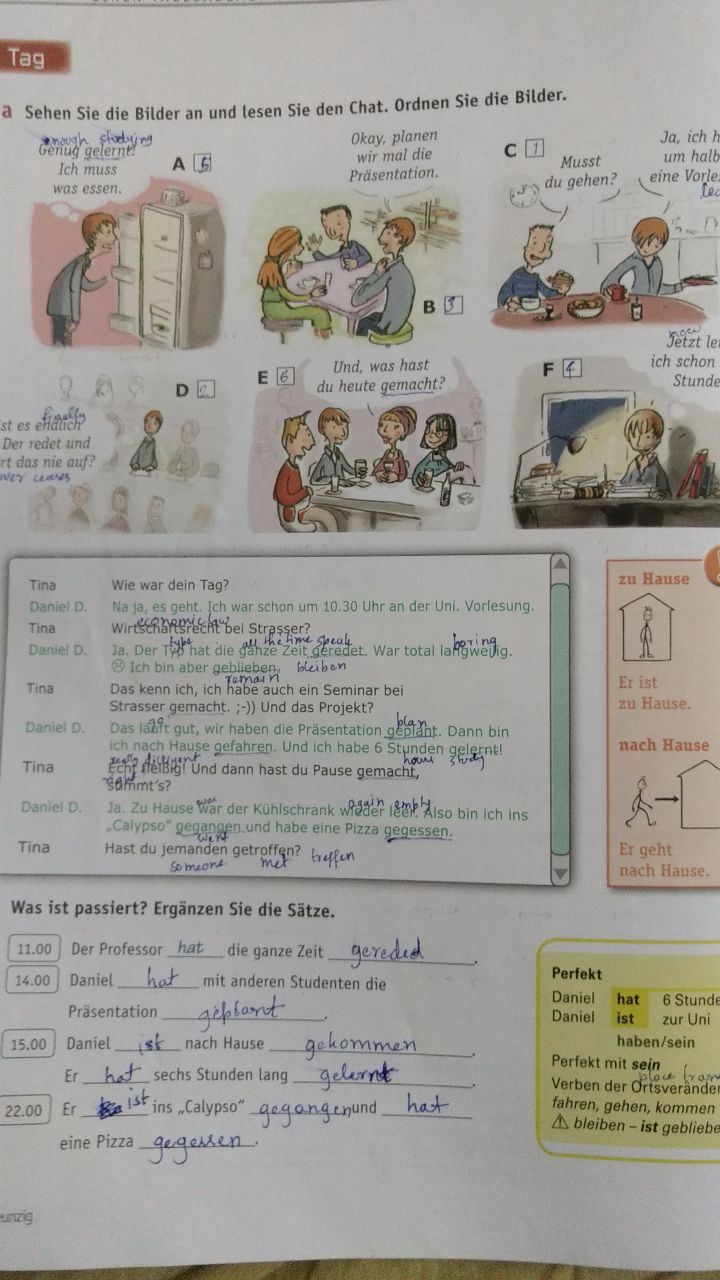 Tag
a Sehen Sie die Bilder an und lesen Sie den Chat. Ordnen Sie die Bilder.
enough studying
Genug gelernt!
Ich muss
was essen.
A 5
Okay, planen
wir mal die
Präsentation.
B 3
C 1
Musst
du gehen?
Ja, ich h
um halb
eine Vorle
lec
D 2
finally
st es endlich
Der redet und
rt das nie auf?
ver ceases
E 6
Und, was hast
du heute gemacht?
F 4
now
Jetzt le
ich schon
Stunde
Tina Wie war dein Tag?
Daniel D. Na ja, es geht. Ich war schon um 10.30 Uhr an der Uni. Vorlesung.
economic law
Tina Wirtschaftsrecht bei Strasser?
type all the time speak boring
Daniel D. Ja. Der Typ hat die ganze Zeit geredet. War total langweilig.
☹ Ich bin aber geblieben. bleiben
remain
Tina Das kenn ich, ich habe auch ein Seminar bei
Strasser gemacht. ;-)) Und das Projekt?
go plan
Daniel D. Das läuft gut, wir haben die Präsentation geplant. Dann bin
ich nach Hause gefahren. Und ich habe 6 Stunden gelernt!
really diligent hours study
Tina Echt fleißig! Und dann hast du Pause gemacht,
right
stimmt's?
was again empty
Daniel D. Ja. Zu Hause war der Kühlschrank wieder leer. Also bin ich ins
„Calypso" gegangen und habe eine Pizza gegessen.
went
Tina Hast du jemanden getroffen?
someone met treffen
zu Hause
Er ist
zu Hause.
nach Hause
Er geht
nach Hause.
Was ist passiert? Ergänzen Sie die Sätze.
11.00 Der Professor hat die ganze Zeit gereded.
14.00 Daniel hat mit anderen Studenten die
Präsentation geplant.
15.00 Daniel ist nach Hause gekommen.
Er hat sechs Stunden lang gelernt.
22.00 Er ist ins „Calypso" gegangen und hat
eine Pizza gegessen.
Perfekt
Daniel hat 6 Stunde
Daniel ist zur Uni
haben/sein
Perfekt mit sein
place
Verben der Ortsveränder
fahren, gehen, kommen
⚠ bleiben – ist gebliebe
unzig